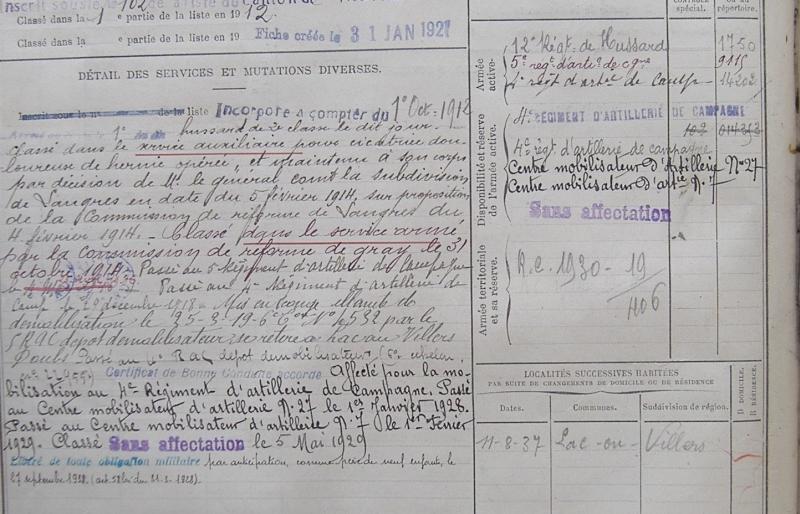 Inscrit sous le n° 102 de la liste du canton de
Classé dans la 1e partie de la liste en 1912.
Classé dans la e partie de la liste en 19
Fiche créée le 31 JAN 1927
DÉTAIL DES SERVICES ET MUTATIONS DIVERSES.
Inscrit sous le n° de la liste Incorporé à compter du 1° Oct. 1912
hussard de 2e classe le dit jour.
Classé dans le service auxiliaire pour cicatrice dou-
loureuse de hernie opérée, et maintenu à son corps
par décision de Mr. le général comt la subdivision
de Langres en date du 5 février 1914, sur proposition
de la Commission de réforme de Langres du
4 février 1914. - Classé dans le service armé
par la commission de réforme de gray le 31
octobre 1914. Passé au 5e Régiment d'artillerie de Campagne
Passé au 4e Régiment d'artillerie de
Camp. le 29 décembre 1918. - Mis en congé illimité de
démobilisation le 25-8-19 6e par le
5 RAC dépôt démobilisateur se retire à Lac au Villers
Doubs Passé au 4e RAC dépôt démobilisateur
Certificat de Bonne Conduite accordé Affecté pour la mo-
bilisation au 4e Régiment d'artillerie de Campagne. Passé
au Centre mobilisateur d'artillerie N° 27 le 1er Janvier 1928.
Passé au Centre mobilisateur d'artillerie N° 7 le 1er Février
1929. Classé Sans affectation le 5 Mai 1929
Libéré de toute obligation militaire par anticipation, comme père de neuf enfants, le
27 septembre 1938. (art. 58 loi du 31.3.1928).
spécial.
répertoire.
Armée active.
12e Régt. de Hussard 1750
5e regt d'artie de cgne 9115
4e regt d'artie de camp 14202
Disponibilité et réserve de l'armée active.
4e RÉGIMENT D'ARTILLERIE DE CAMPAGNE
4e régt d'artillerie de campagne
Centre mobilisateur d'Artillerie N° 27
Centre mobilisateur d'artie N° 7
Sans affectation
Armée territoriale et sa réserve.
R.C. 1930 - 19/406
LOCALITÉS SUCCESSIVES HABITÉES
PAR SUITE DE CHANGEMENTS DE DOMICILE OU DE RÉSIDENCE
Dates. Communes. Subdivision de région. D DOMICILE. R RÉSIDENCE.
11-8-37 Lac-ou-Villers